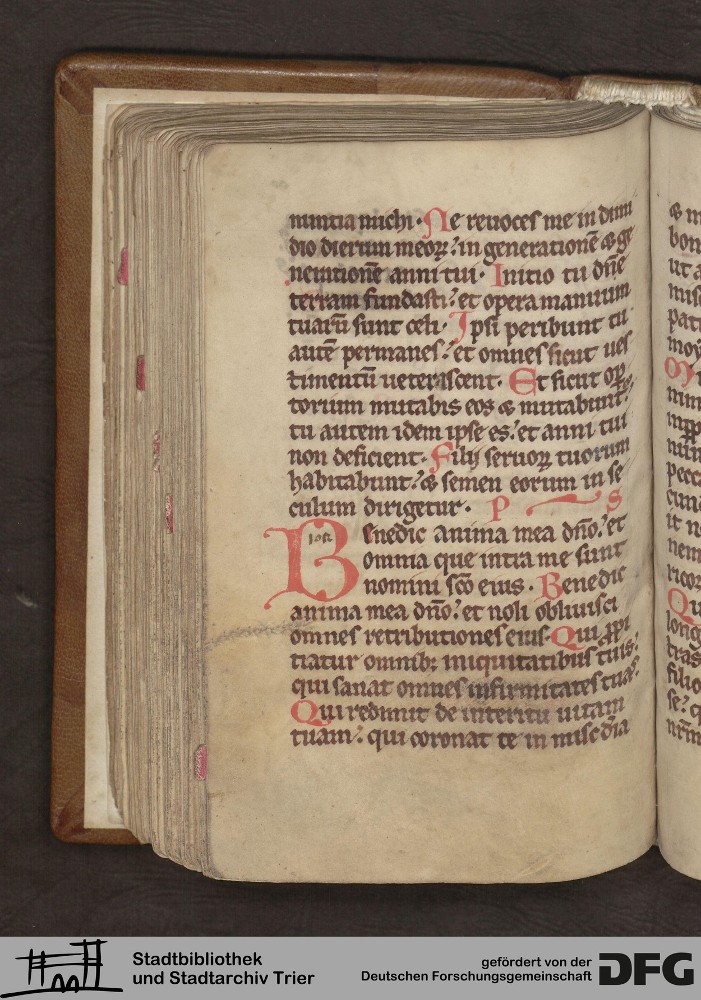 nuntia michi · Ne reuoces me in dimi
dio dierum meoꝝ: in generationē & ge
nerationē anni tui · Initio tu dn̄e
terram fundasti: et opera manuum
tuarū sunt celi · Ipsi peribunt tu
autē permanes: et omnes sicut ues
timentū ueterascent · Et sicut op̱
torium mutabis eos & mutabunt:
tu autem idem ipse es: et anni tui
non deficient · Filij seruoꝝ tuorum
habitabunt: & semen eorum in se
culum dirigetur · P S
Benedic anima mea dn̄o: et
omnia que intra me sunt
nomini sc̄o eius · Benedic
anima mea dn̄o: et noli obliuisci
omnes retributiones eius · Qui ꝓpi
tiatur omnibꝫ iniquitatibus tuis:
qui sanat omnes infirmitates tuas ·
Qui redimit de interitu uitam
tuam: qui coronat te in misc̄dia
Stadtbibliothek
und Stadtarchiv Trier
gefördert von der
Deutschen Forschungsgemeinschaft DFG